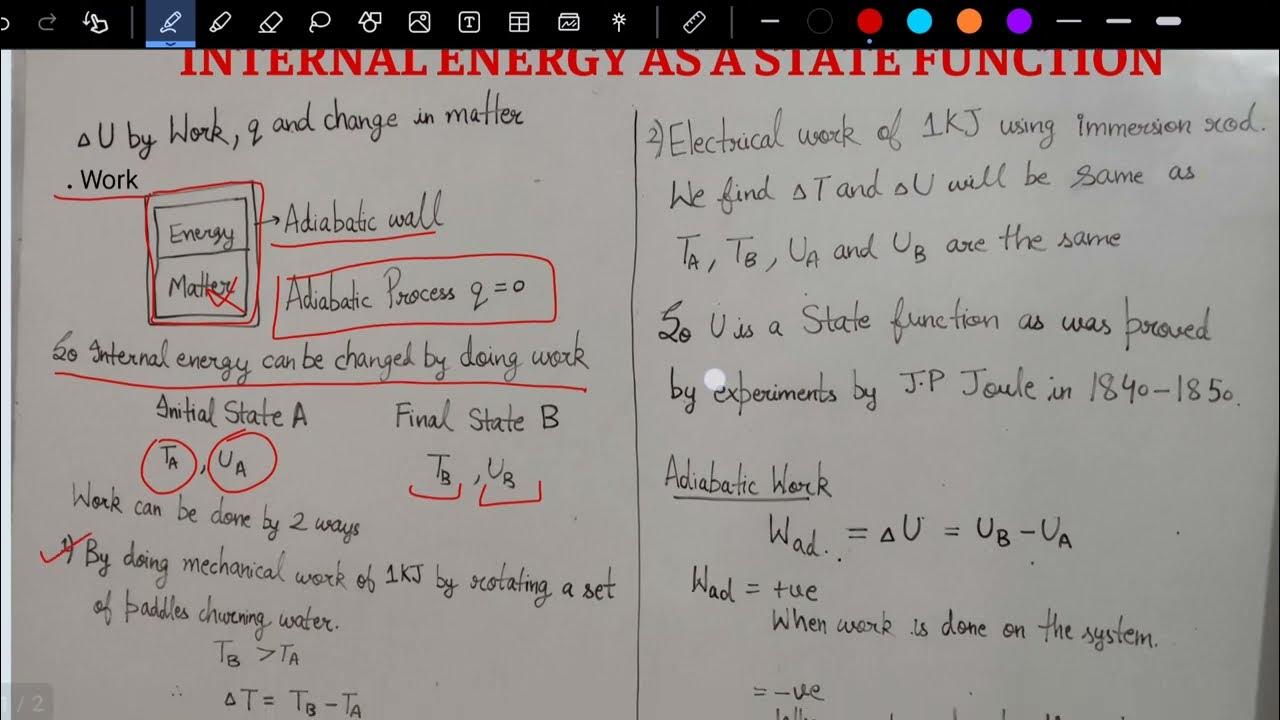 INTERNAL ENERGY AS A STATE FUNCTION
ΔU by Work, q and change in matter
. Work
Energy
Matter
→ Adiabatic wall
Adiabatic Process q = 0
So Internal energy can be changed by doing work
Initial State A
Final State B
T_A, U_A
T_B, U_B
Work can be done by 2 ways
1) By doing mechanical work of 1KJ by rotating a set
of paddles churning water.
T_B > T_A
∴ ΔT = T_B - T_A
1 / 2
2) Electrical work of 1KJ using immersion rod.
We find ΔT and ΔU will be same as
T_A, T_B, U_A and U_B are the same
So U is a State function as was proved
by experiments by J.P Joule in 1840-1850.
Adiabatic Work
W_ad. = ΔU = U_B - U_A
W_ad = +ve
When work is done on the system.
= -ve